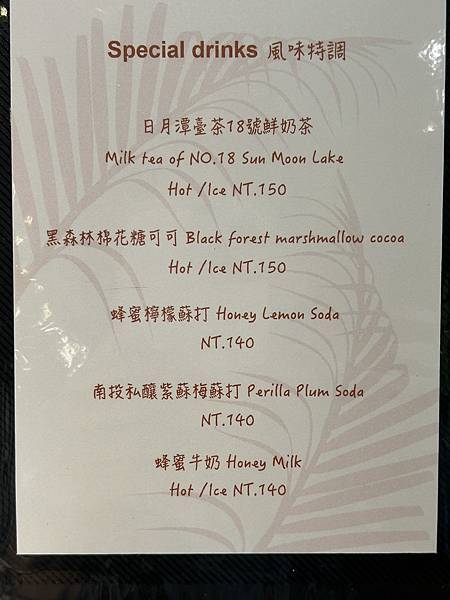 Special drinks 風味特調
日月潭臺茶18號鮮奶茶
Milk tea of NO.18 Sun Moon Lake
Hot /Ice NT.150
黑森林棉花糖可可 Black forest marshmallow cocoa
Hot /Ice NT.150
蜂蜜檸檬蘇打 Honey Lemon Soda
NT.140
南投私釀紫蘇梅蘇打 Perilla Plum Soda
NT.140
蜂蜜牛奶 Honey Milk
Hot /Ice NT.140